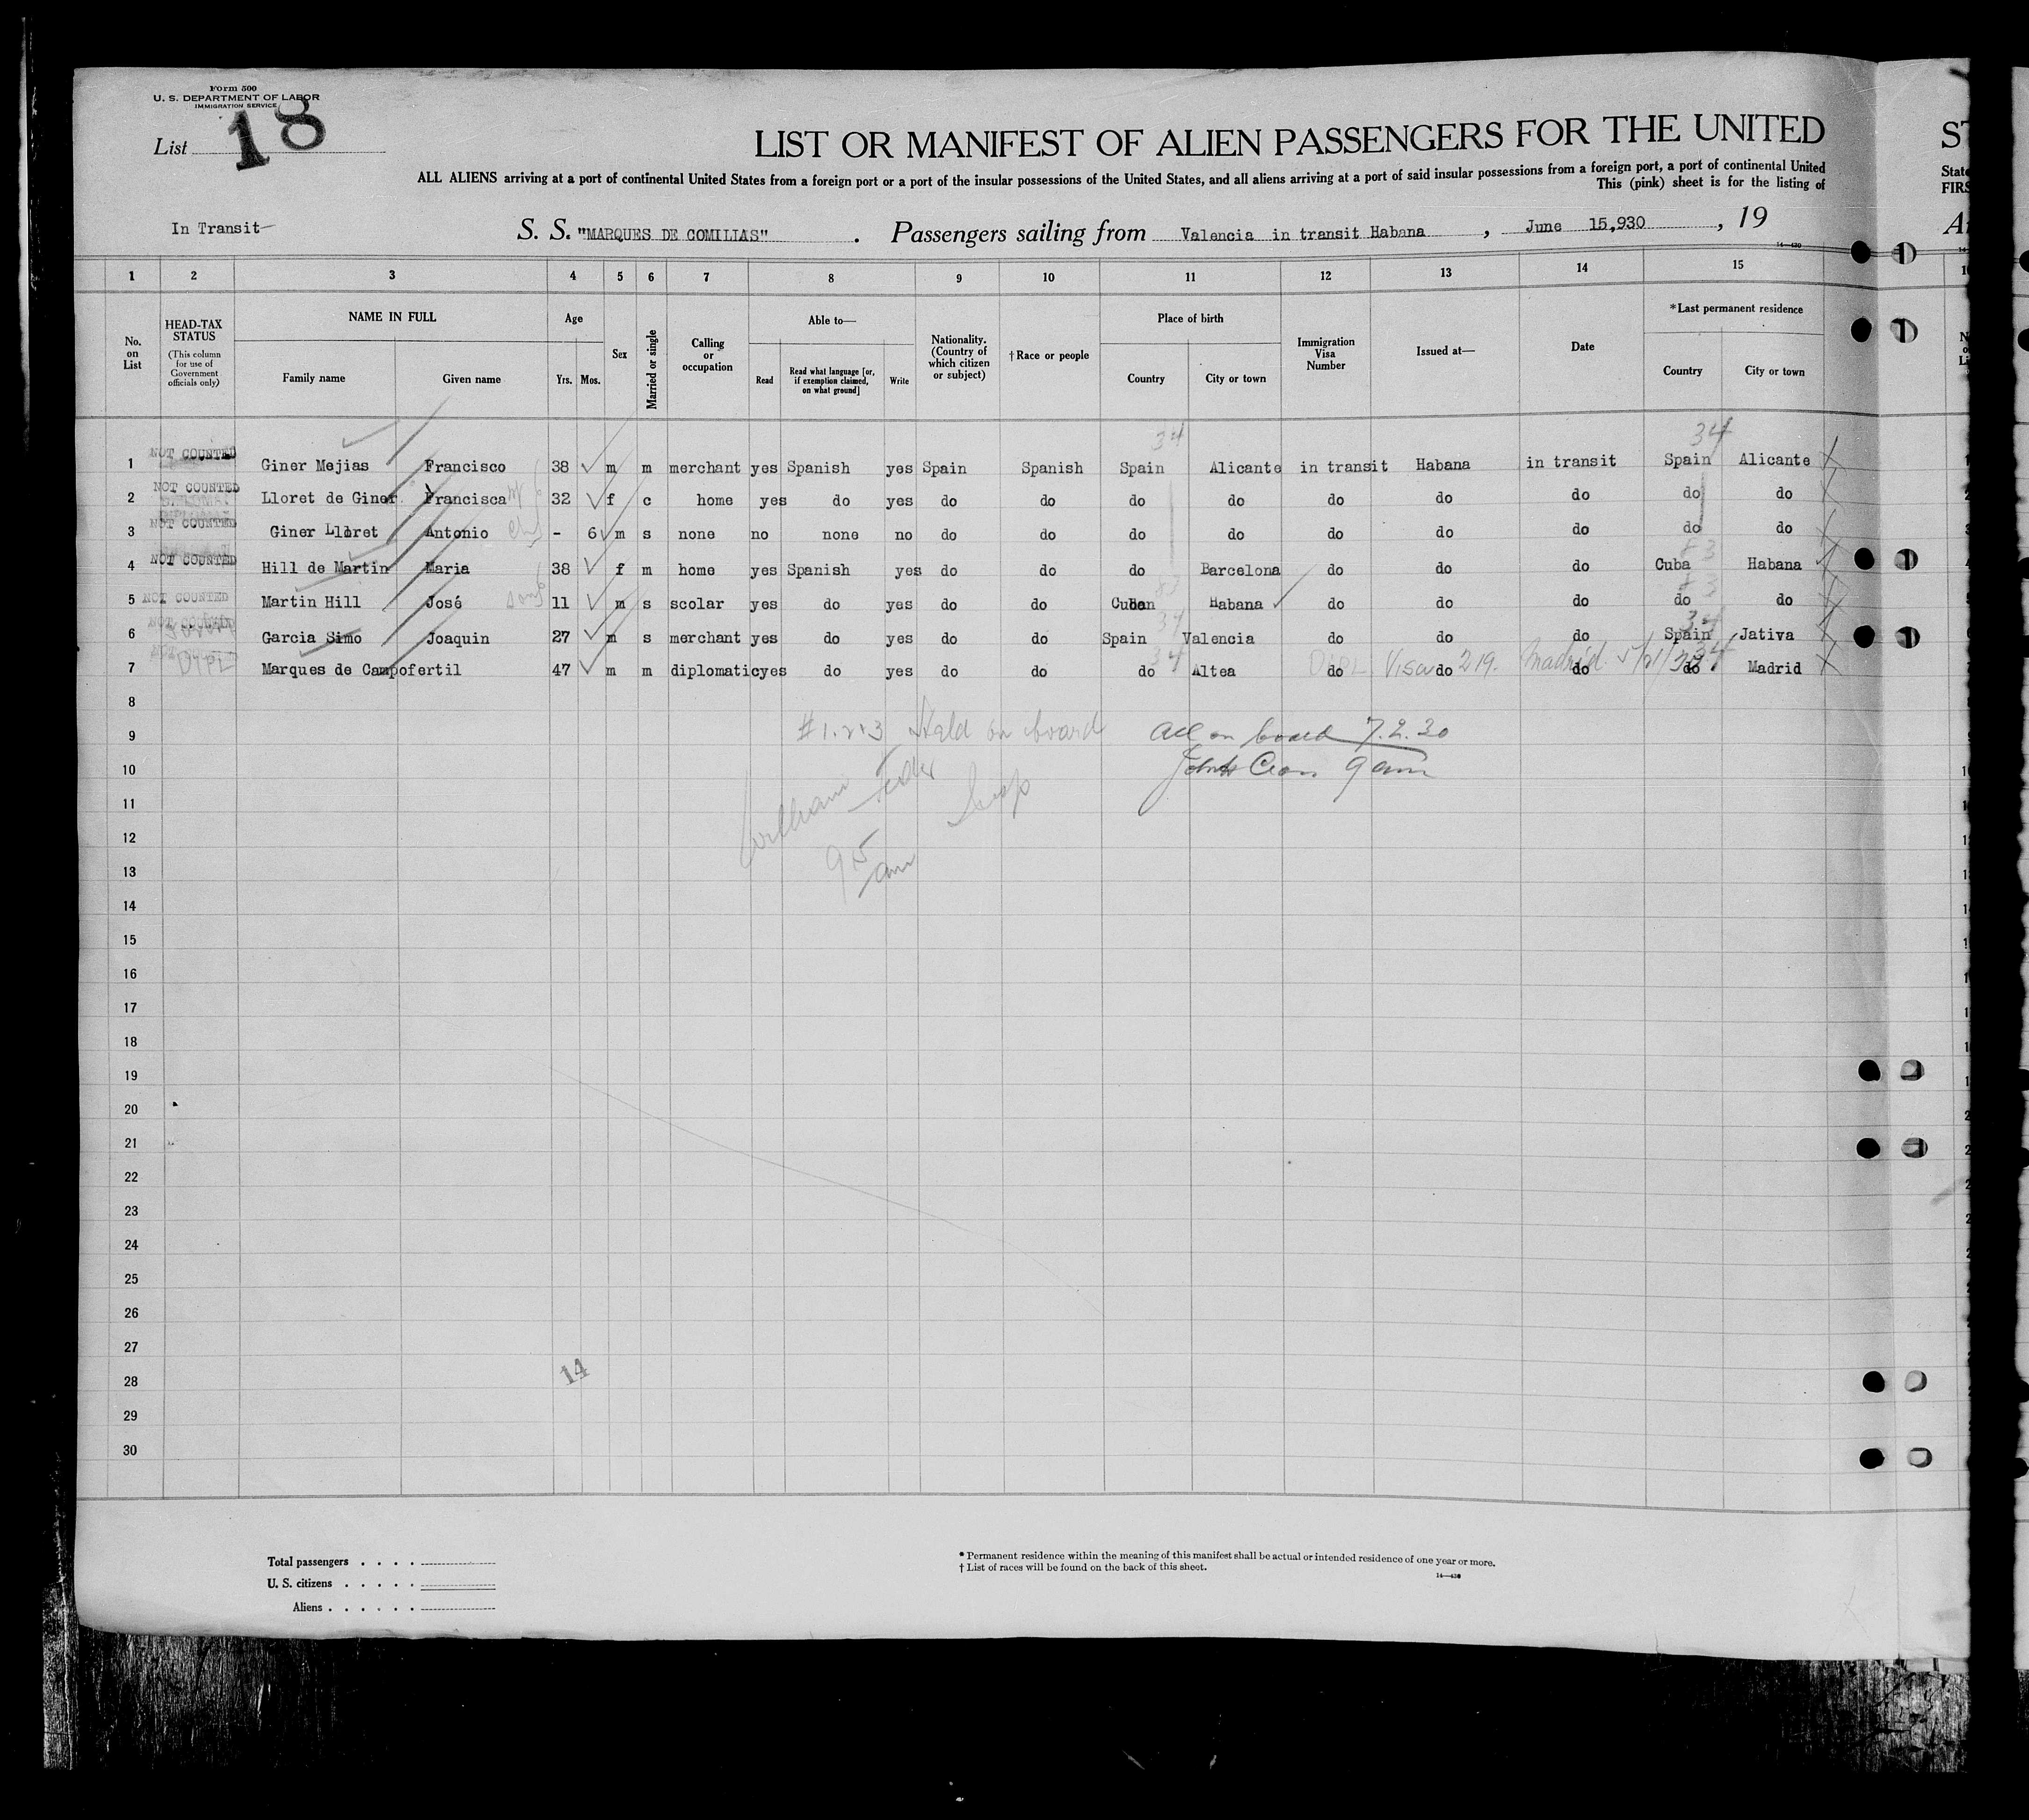 Form 500
U. S. DEPARTMENT OF LABOR
IMMIGRATION SERVICE
List 18
LIST OR MANIFEST OF ALIEN PASSENGERS FOR THE UNITED
ALL ALIENS arriving at a port of continental United States from a foreign port or a port of the insular possessions of the United States, and all aliens arriving at a port of said insular possessions from a foreign port, a port of continental United
This (pink) sheet is for the listing of
State
FIRS
In Transit S. S. "MARQUES DE COMILIAS". Passengers sailing from Valencia in transit Habana, June 15,930, 19
14—430
1 2 3 4 5 6 7 8 9 10 11 12 13 14 15
No. on List HEAD-TAX STATUS (This column for use of Government officials only) NAME IN FULL Family name Given name Age Yrs. Mos. Sex Married or single Calling or occupation Able to— Read Read what language [or, if exemption claimed, on what ground] Write Nationality. (Country of which citizen or subject) †Race or people Place of birth Country City or town Immigration Visa Number Issued at— Date *Last permanent residence Country City or town
34 34
1 NOT COUNTED Giner Mejias Francisco 38 m m merchant yes Spanish yes Spain Spanish Spain Alicante in transit Habana in transit Spain Alicante
2 NOT COUNTED Lloret de Giner Francisca 32 f c home yes do yes do do do do do do do do do
3 NOT COUNTED Giner Lloret Antonio - 6 m s none no none no do do do do do do do do do
83
4 NOT COUNTED Hill de Martin Maria 38 f m home yes Spanish yes do do do Barcelona do do do Cuba Habana
83 83
5 NOT COUNTED Martin Hill José son 11 m s scolar yes do yes do do Cuban Habana do do do do do
34 34
6 NOT COUNTED Garcia Simo Joaquin 27 m s merchant yes do yes do do Spain Valencia do do do Spain Jativa
34 34
7 DIPL Marques de Campofertil 47 m m diplomatic yes do yes do do do Altea do do do do Madrid
DIPL Visa 219. Madrid 5/21/30
8
9 #1.2.3 Held on board All on board 7.2.30
10 9 am
11 Insp
12
13 9 15 am
14
15
16
17
18
19
20
21
22
23
24
25
26
27
28 14
29
30
Total passengers . . . .
U. S. citizens . . . . .
Aliens . . . . . .
* Permanent residence within the meaning of this manifest shall be actual or intended residence of one year or more.
† List of races will be found on the back of this sheet.
14—430